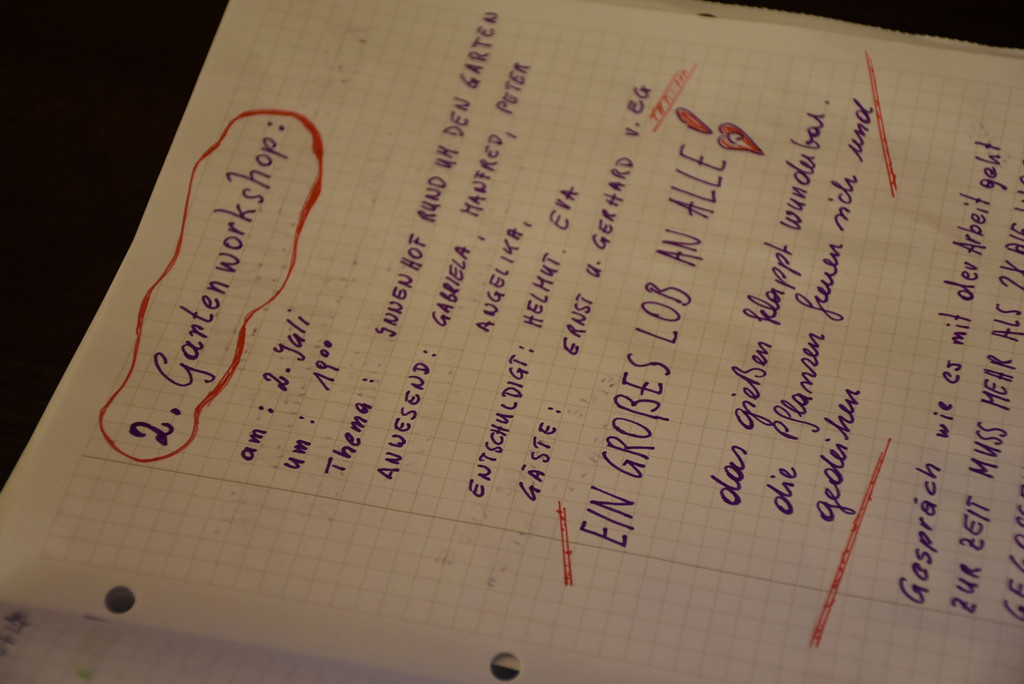 2. Gartenworkshop:
am: 2. Juli
um: 19⁰⁰
Thema: INNENHOF RUND UM DEN GARTEN
ANWESEND: GABRIELA, MANFRED, PETER
ANGELIKA,
ENTSCHULDIGT: HELMUT. EVA
GÄSTE: ERNST u. GERHARD v. EG
EIN GROßES LOB AN ALLE
das gießen klappt wunderbar.
die Pflanzen freuen sich und
gedeihen
Gespräch wie es mit der Arbeit geht
ZUR ZEIT MUSS MEHR ALS 2X